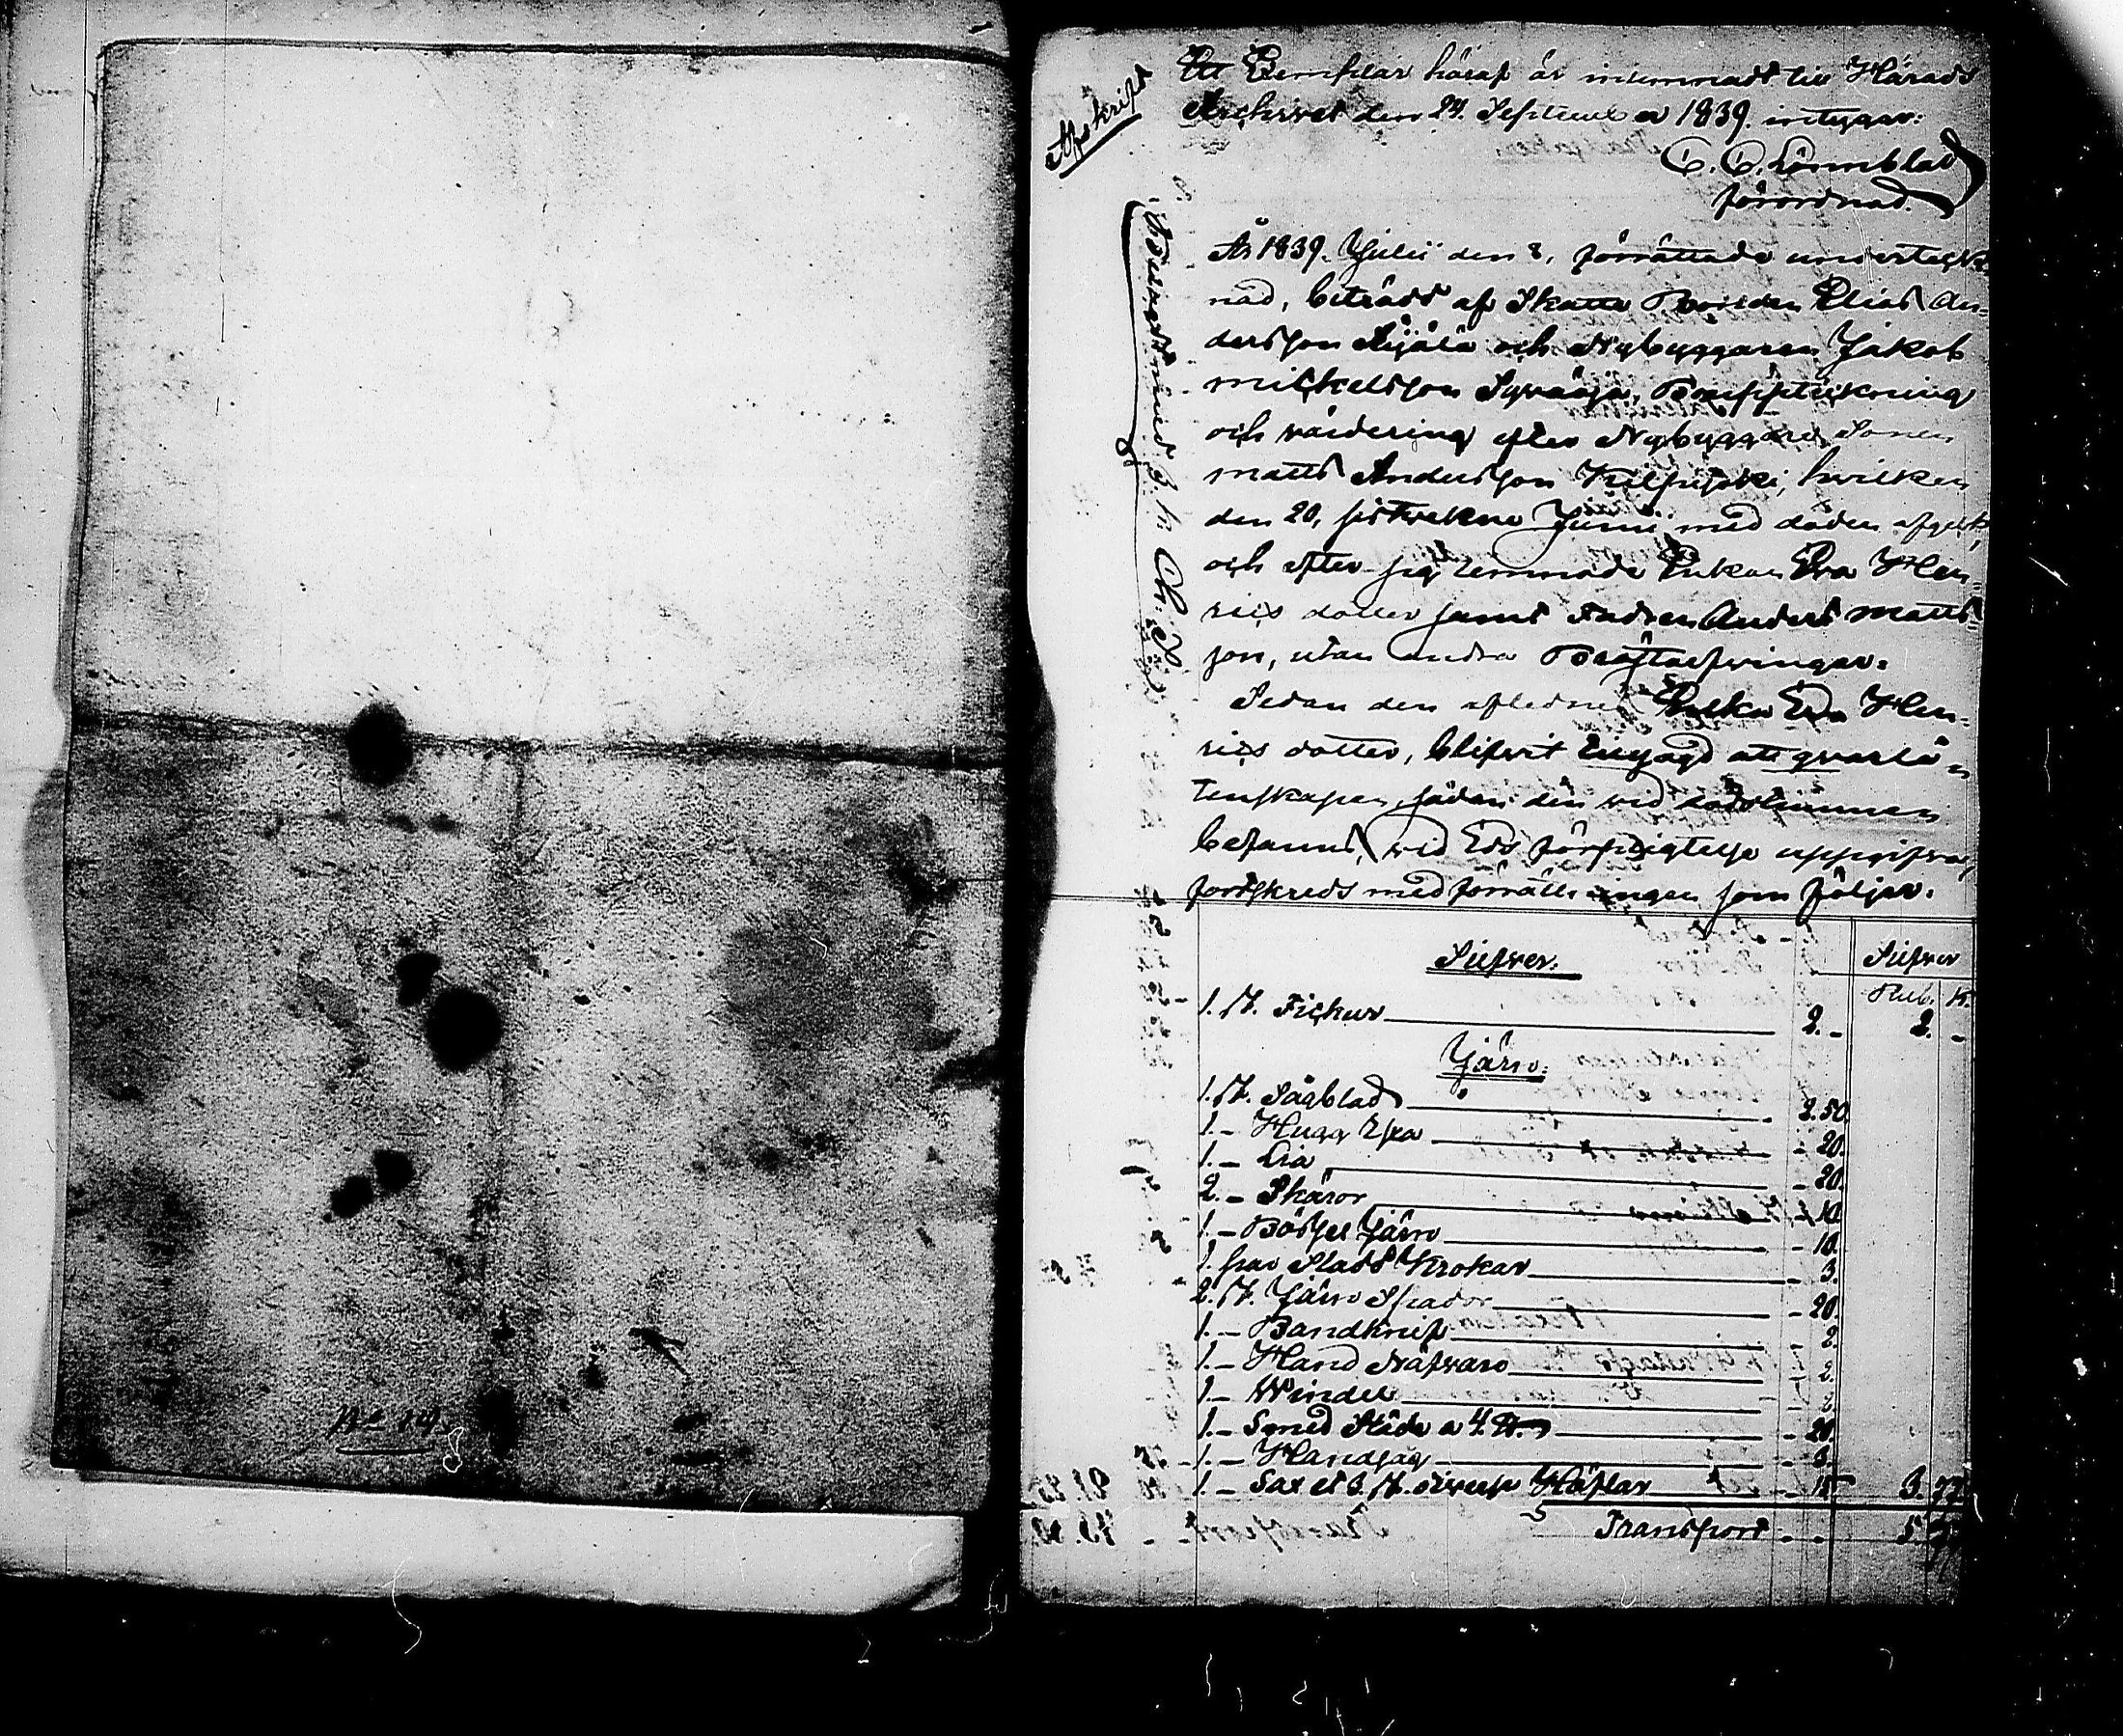 No 19.
Afskrift
Ett Exemplar häraf är inlemnadt till Härads
Archivet den 24. September 1839. intygar:
C. C. Lönnblad
förordnad.
År 1839. Julii den 8, förrättade underteck-
nad, biträdd af Skatte Bonden Elias An-
dersson Äijälä och Nybyggaren Jakob
Mickelsson Boupptekning
och värdering efter Nybyggare Sonen
Matts Andersson hvilken
den 20, sistvekne Junii med döden afgick,
och efter sig lemnade Enkan Eva Hen-
rics dotter samt Fadren Anders Matts-
son, utan andra Bröstarfvingar.
Sedan den aflednes Enka Eva Hen-
rics dotter, blifvit tillsagd att qvarlå-
tenskapen, sådan den vid dödstimmen
befanns, vid Eds förpligtelse uppgifva,
fortskreds med förrättningen som följer.
Silfver
Rub. K.
Silfver.
1. St. Fickur 2. - 2. -
Järn:
1. St. Sågblad 2.50.
1. - Hugg Yxa - 20.
1. - Lia - 20.
2. - Skäror - 10.
1. - Bössel Järn - 10.
1. par Släds Krokar - 3.
2. St. Järn Spador - 20.
1. - Bandknif - 2.
1. - Hand Näfvare - 2.
1. - Windel - 2.
1. - Smed Städe a 4. - 20.
1. - Handsåg - 3.
1. - Sax et 3. St. Häflar - 15 3. 77
Transport - - 5. 77